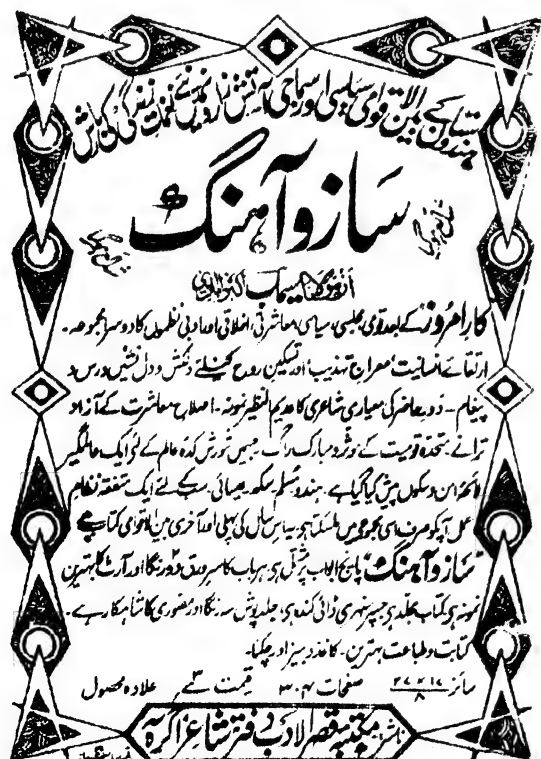 ہندوستان کے بین الاقوامی سیاسی اور سماجی آتش زار میں نغمات زندگی کی بارش
ساز و آہنگ
شائع ہو گیا
شائع ہو گیا
از مولانا سیماب اکبرآبادی
کارامروز کے بعد قومی، مجلسی، سیاسی، معاشرتی، اخلاقی اور ادبی نظموں کا دوسرا مجموعہ۔
ارتقائے انسانیت، معراج تہذیب، اور تسکین روح کیلئے دلکش و دل نشیں درس و
پیغام۔ دورِ حاضر کی معیاری شاعری کا عدیم النظیر نمونہ۔ اصلاح معاشرت کے آزاد
ترانے۔ متحدہ قومیت کے مؤثر و مبارک راگ۔ جسمیں شورش کدہ عالم کے لئے ایک عالمگیر
لائحہ امن و سکون پیش کیا گیا ہے۔ ہندو مسلم سکھ عیسائی۔ سب کے لئے ایک متفقہ نظام
عمل آپکو صرف اسی مجموعہ میں مل سکتا ہے یہ اس سال کی پہلی اور آخری بین الاقوامی کتاب ہے
"ساز و آہنگ" پانچ ابواب پر مشتمل ہے ہر باب کا سرورق دو رنگا اور آرٹ کا بہترین
نمونہ ہے کتاب مجلد ہے جسپر سنہری ڈائی کندہ ہے، جلد پوش سہ رنگا اور مصوری کا شاہکار ہے۔
کتابت و طباعت بہترین۔ کاغذ دبیز اور چکنا۔
سائز صفحات ۳۰۴ قیمت ۳ علاوہ محصول
ناشر مکتبہ قصر الادب دفتر شاعر آگرہ